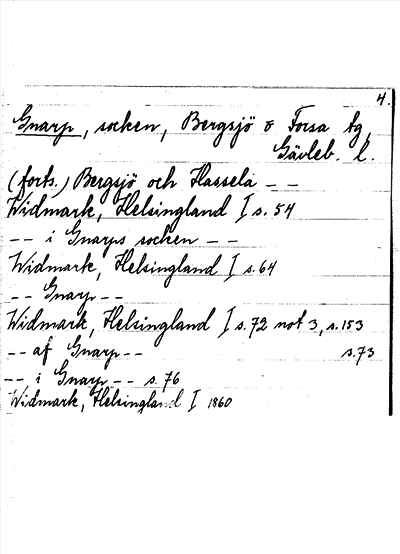 4.
Gnarp, socken, Bergsjö o Forsa tg,
Gävleb. l.
(forts.) Bergsjö och Hassela – –
Widmark, Helsingland I s. 54
– – i Gnarps socken – –
Widmark, Helsingland I s. 64
– – Gnarp – –
Widmark, Helsingland I s. 72 not 3, s. 153
– – af Gnarp – – s. 73
– – i Gnarp – – s. 76
Widmark, Helsingland I 1860